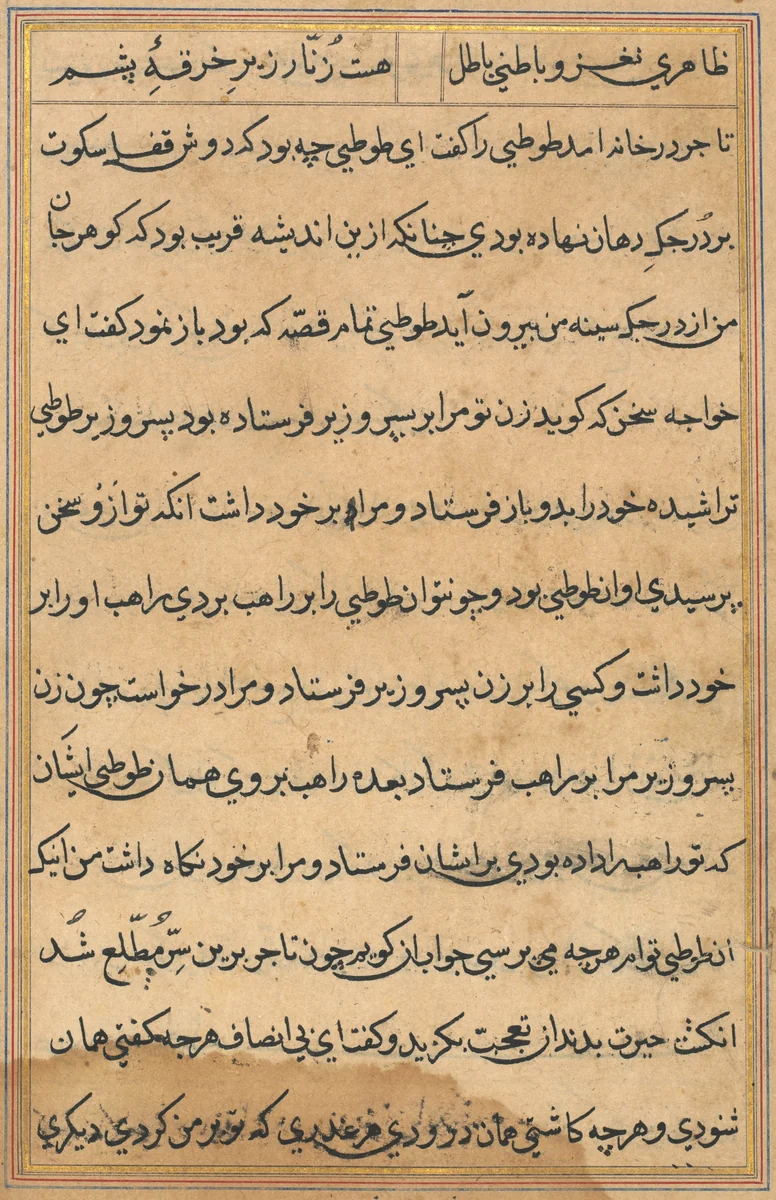 ظاهري نغز و باطني باطل هست زُنّار زیرِ خرقهٔ پشم
تاجر در خانه امد طوطیي را کفت اي طوطیي چه بود که دوش قفل سکوت
بر دُرجکِ دهان نهاده بودي چنانکه ازین اندیشه قریب بود که کوهر جان
من از درجک سینه من بیرون آید طوطیي تمام قصّه که بود باز نمود کفت اي
خواجه سخن که کوید زن تو مرا بر پسر وزیر فرستاده بود پسر وزیر طوطیي
تراشیده خود را بدو باز فرستاد و مرا بر خود داشت انکه تو ازو سخن
پرسیدي او ان طوطیي بود و چو نتوان طوطیي را بر راهب بردي راهب او را بر
خود داشت و کسي را بر زن پسر وزیر فرستاد و مرا درخواست چون زن
پسر وزیر مرا بر راهب فرستاد بعده راهب بروي همان طوطیي ایشان
که تو راهب را داده بودي بر ایشان فرستاد و مرا بر خود نکاه داشت من اینک
ان طوطیي توام هرچه مي پرسي جواب ان کویم چون تاجر برین سِرّ مُطّلِع شُد
انکشت حیرت بدندان تعجب بکزید و کفت اي بي انصاف هرچه کفتي همان
شنودي و هرچه کاشتي همان درودي هر غدري که تو بر من کردي دیکري